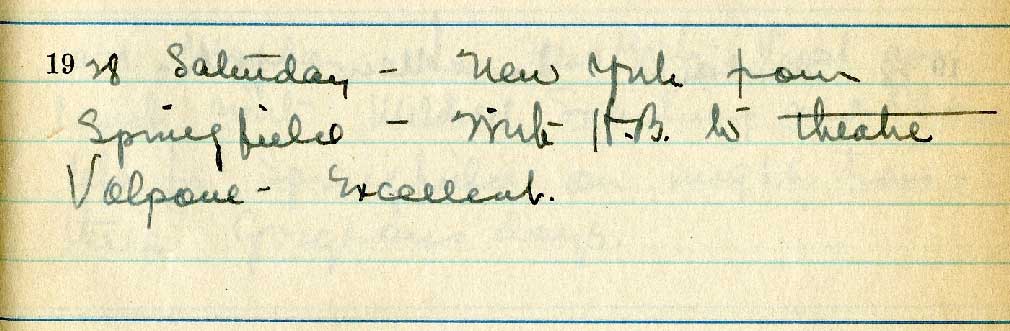 1928 Saturday - New York from
Springfield - With H.B. to theatre
Volpone - Excellent.